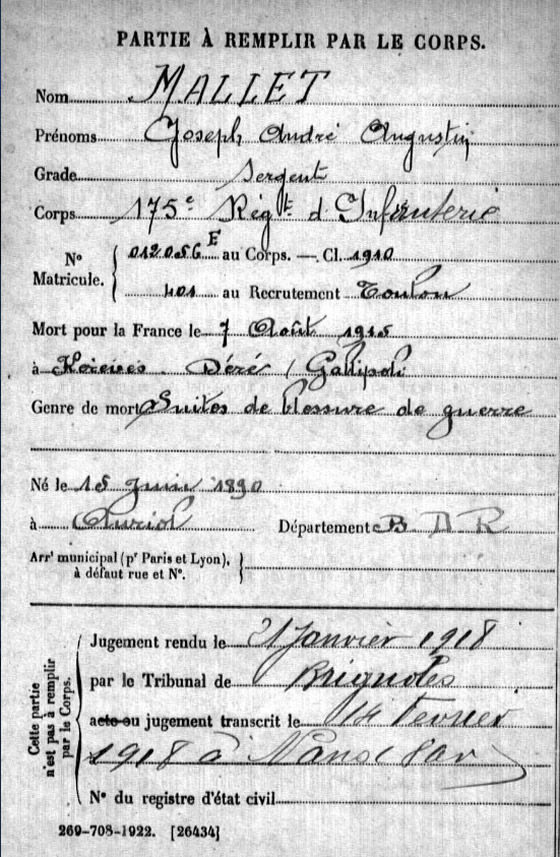 PARTIE À REMPLIR PAR LE CORPS.
Nom MALLET
Prénoms Joseph André Augustin
Grade Sergent
Corps 175e Régt d'Infanterie
No Matricule. 012056 E au Corps. — Cl. 1910
401 au Recrutement Toulon
Mort pour la France le 7 Août 1915
à Déré / Gallipoli
Genre de mort Suites de blessure de guerre
Né le 15 Juin 1890
à Auriol Département B D R
Arrt municipal (pr Paris et Lyon), à défaut rue et No.
Cette partie n'est pas à remplir par le Corps.
Jugement rendu le 21 Janvier 1918
par le Tribunal de Brignoles
acte ou jugement transcrit le 14 Fevrier
1918 à Nans (Var)
No du registre d'état civil
269-708-1922. [26434]